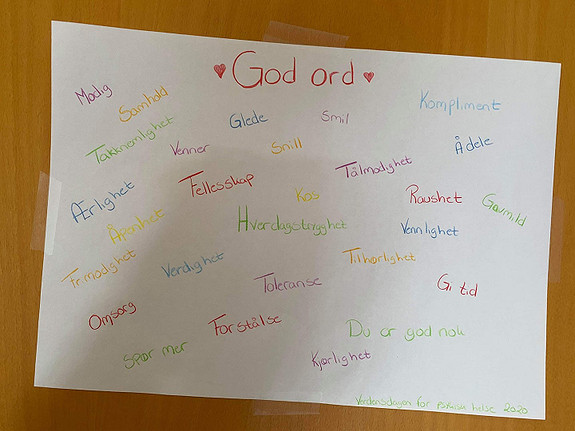 God ord
Modig
Samhold
Kompliment
Takknemlighet
Glede
Smil
Venner
Snill
Å dele
Tålmodighet
Ærlighet
Fellesskap
Kos
Raushet
Gavmild
Åpenhet
Hverdagstrygghet
Vennlighet
Frimodighet
Verdighet
Tilhørlighet
Toleranse
Gi tid
Omsorg
Forståelse
Du er god nok
Spør mer
Kjærlighet
Verdensdagen for psykisk helse 2020